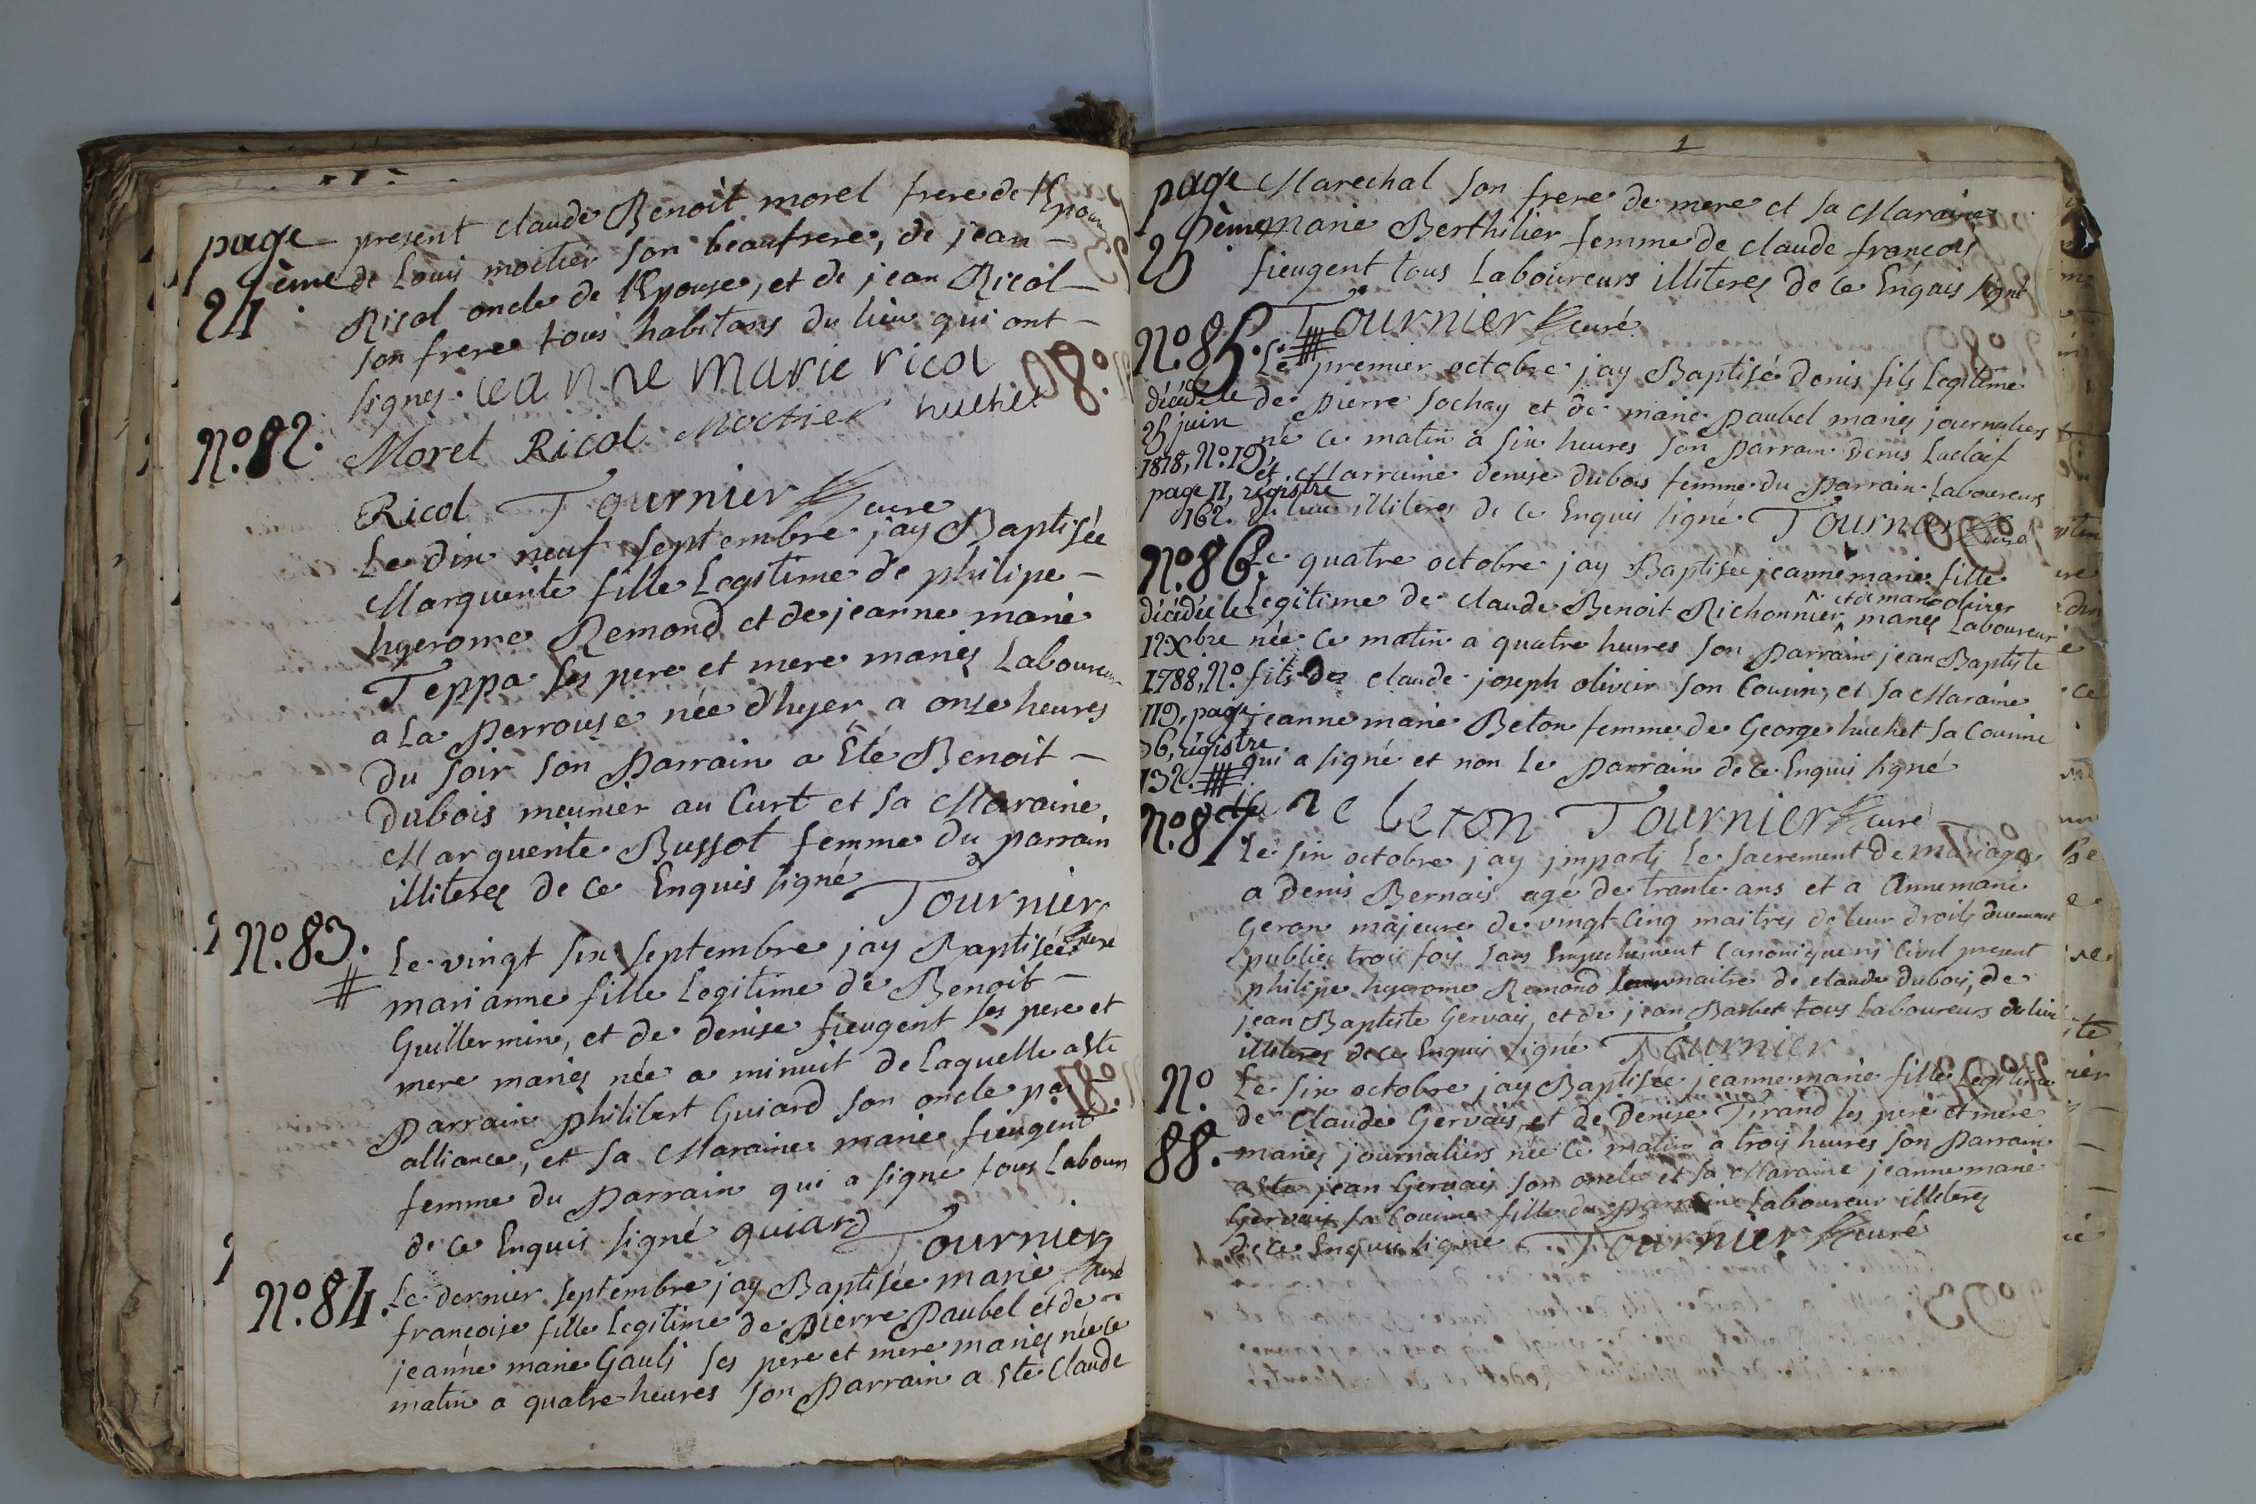 page
24ème
present claude Benoit morel frere de l'Epoux
de Louis moitier son beaufrere, de jean -
Ricol oncle de l'Epouse, et de jean Ricol -
son frere tous habitans du lieu qui ont -
signes. jeanne Marie ricol
Morel Ricol Moitier huchet
Ricol Tournier curé
No. 82.
Le dix neuf septembre jay Baptisée
Marguerite fille Legitime de philipe -
hyerome Remond et de jeanne marie
Teppa ses pere et mere mariés Laboureurs
a La perrouse née d'hyer a onze heures
du soir son Parrain a Ete Benoit -
Dubois meunier au Curt et sa Maraine
Marguerite Bussot femme du parrain
illiteres de ce Enquis signé Tournier curé
No. 83.
Le vingt six septembre jay Baptisée
marianne fille Legitime de Benoit -
Guillermin, et de denise fieugent ses pere et
mere mariés née a minuit de Laquelle a ete
Parrain philibert Guiard son oncle par
alliance, et sa Maraine marie fieugent
femme du Parrain qui a signé tous Labours
de ce Enquis signé guiard Tournier curé
No. 84.
Le dernier septembre jay Baptisée marie
françoise fille Legitime de Pierre Paubel et de -
jeanne marie Gauli ses pere et mere mariés née ce
matin a quatre heures son Parrain a Ete Claude
page
25ème
Marechal son frere de mere et sa Maraine
marie Berthilier femme de claude francois
fieugent tous Laboureurs illiteres de ce Enquis signé
Tournier curé
No. 85.
Le premier octobre jay Baptisé denis fils Legitime
de Pierre sochay et de marie Paubel mariés journaliers
né ce matin a six heures son parrain Denis Laclef
et Marraine denise dubois femme du Parrain Laboureurs
du lieu illiteres de ce Enquis signé Tournier curé
décédé le
25 juin
1818, No. 19,
page 11, régistre
162.
No. 86
Le quatre octobre jay Baptisée jeanne marie fille
Legitime de claude Benoit Richonnier et de marie olivier mariés Laboureur
née ce matin a quatre heures son parrain jean Baptiste
fils de claude joseph olivier son Cousin, et sa Maraine
jeanne marie Beton femme de George huchet sa Cousine
qui a signé et non le parrain de ce Enquis signé
beton Tournier curé
décédée le
12 Xbre
1788, No.
119, page
36, régistre
132.
No. 87
Le six octobre jay jmparti Le sacrement de mariage
a Denis Bernais agé de trante ans et a Annemarie
Geran majeure de vingt Cinq maitres de leur droits duement
publiés trois fois sans Empechement canonique ni Civil present
philipe hyerome Remond leur maitre de claude dubois, de
jean Baptiste Gervais, et de jean Barbet tous Laboureurs du lieu
illiteres de ce Enquis signé Tournier
No.
88.
Le six octobre jay Baptisée jeanne marie fille Legitime
de Claude Gervais, et de Denise Tirand ses pere et mere
mariés journaliers née ce matin a trois heures son Parrain
a ete jean Gervais son oncle et sa Maraine jeanne marie
Gervais sa Cousine fille du Parrain Laboureur illiteres
de ce Enquis signé Tournier curé